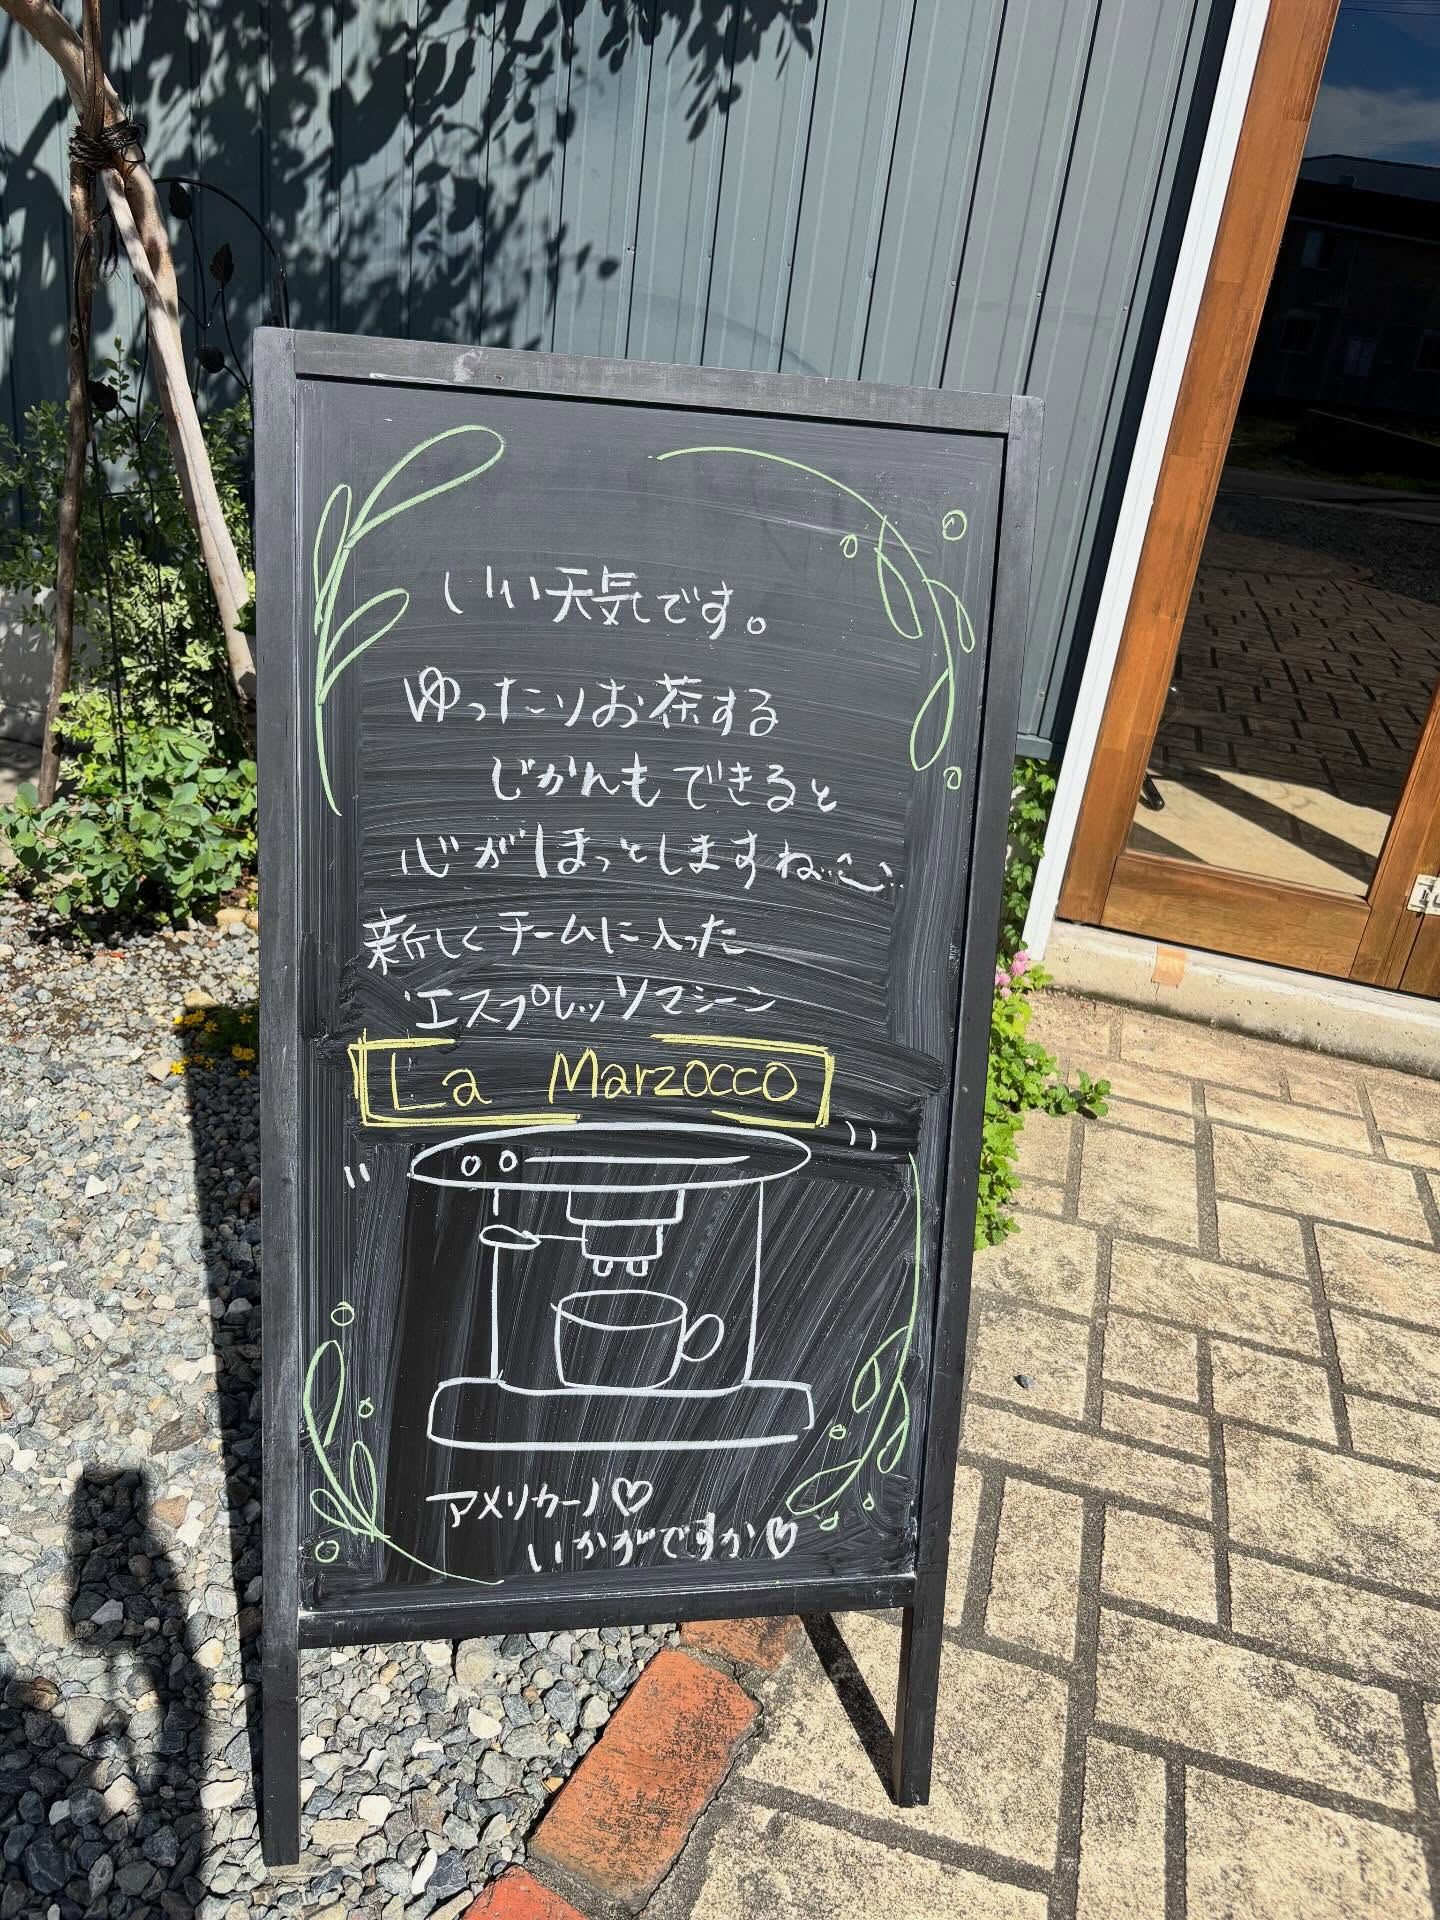 いい天気です。
ゆったりお茶する
じかんもできると
心がほっとしますね
新しくチームに入った
エスプレッソマシーン
La Marzocco
アメリカーノ♡
いかがですか♡